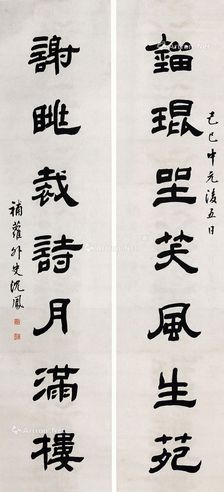 己巳中元後五日
鎦琨坐笑風生苑
謝眺裁詩月滿樓
補蘿外史沈鳳